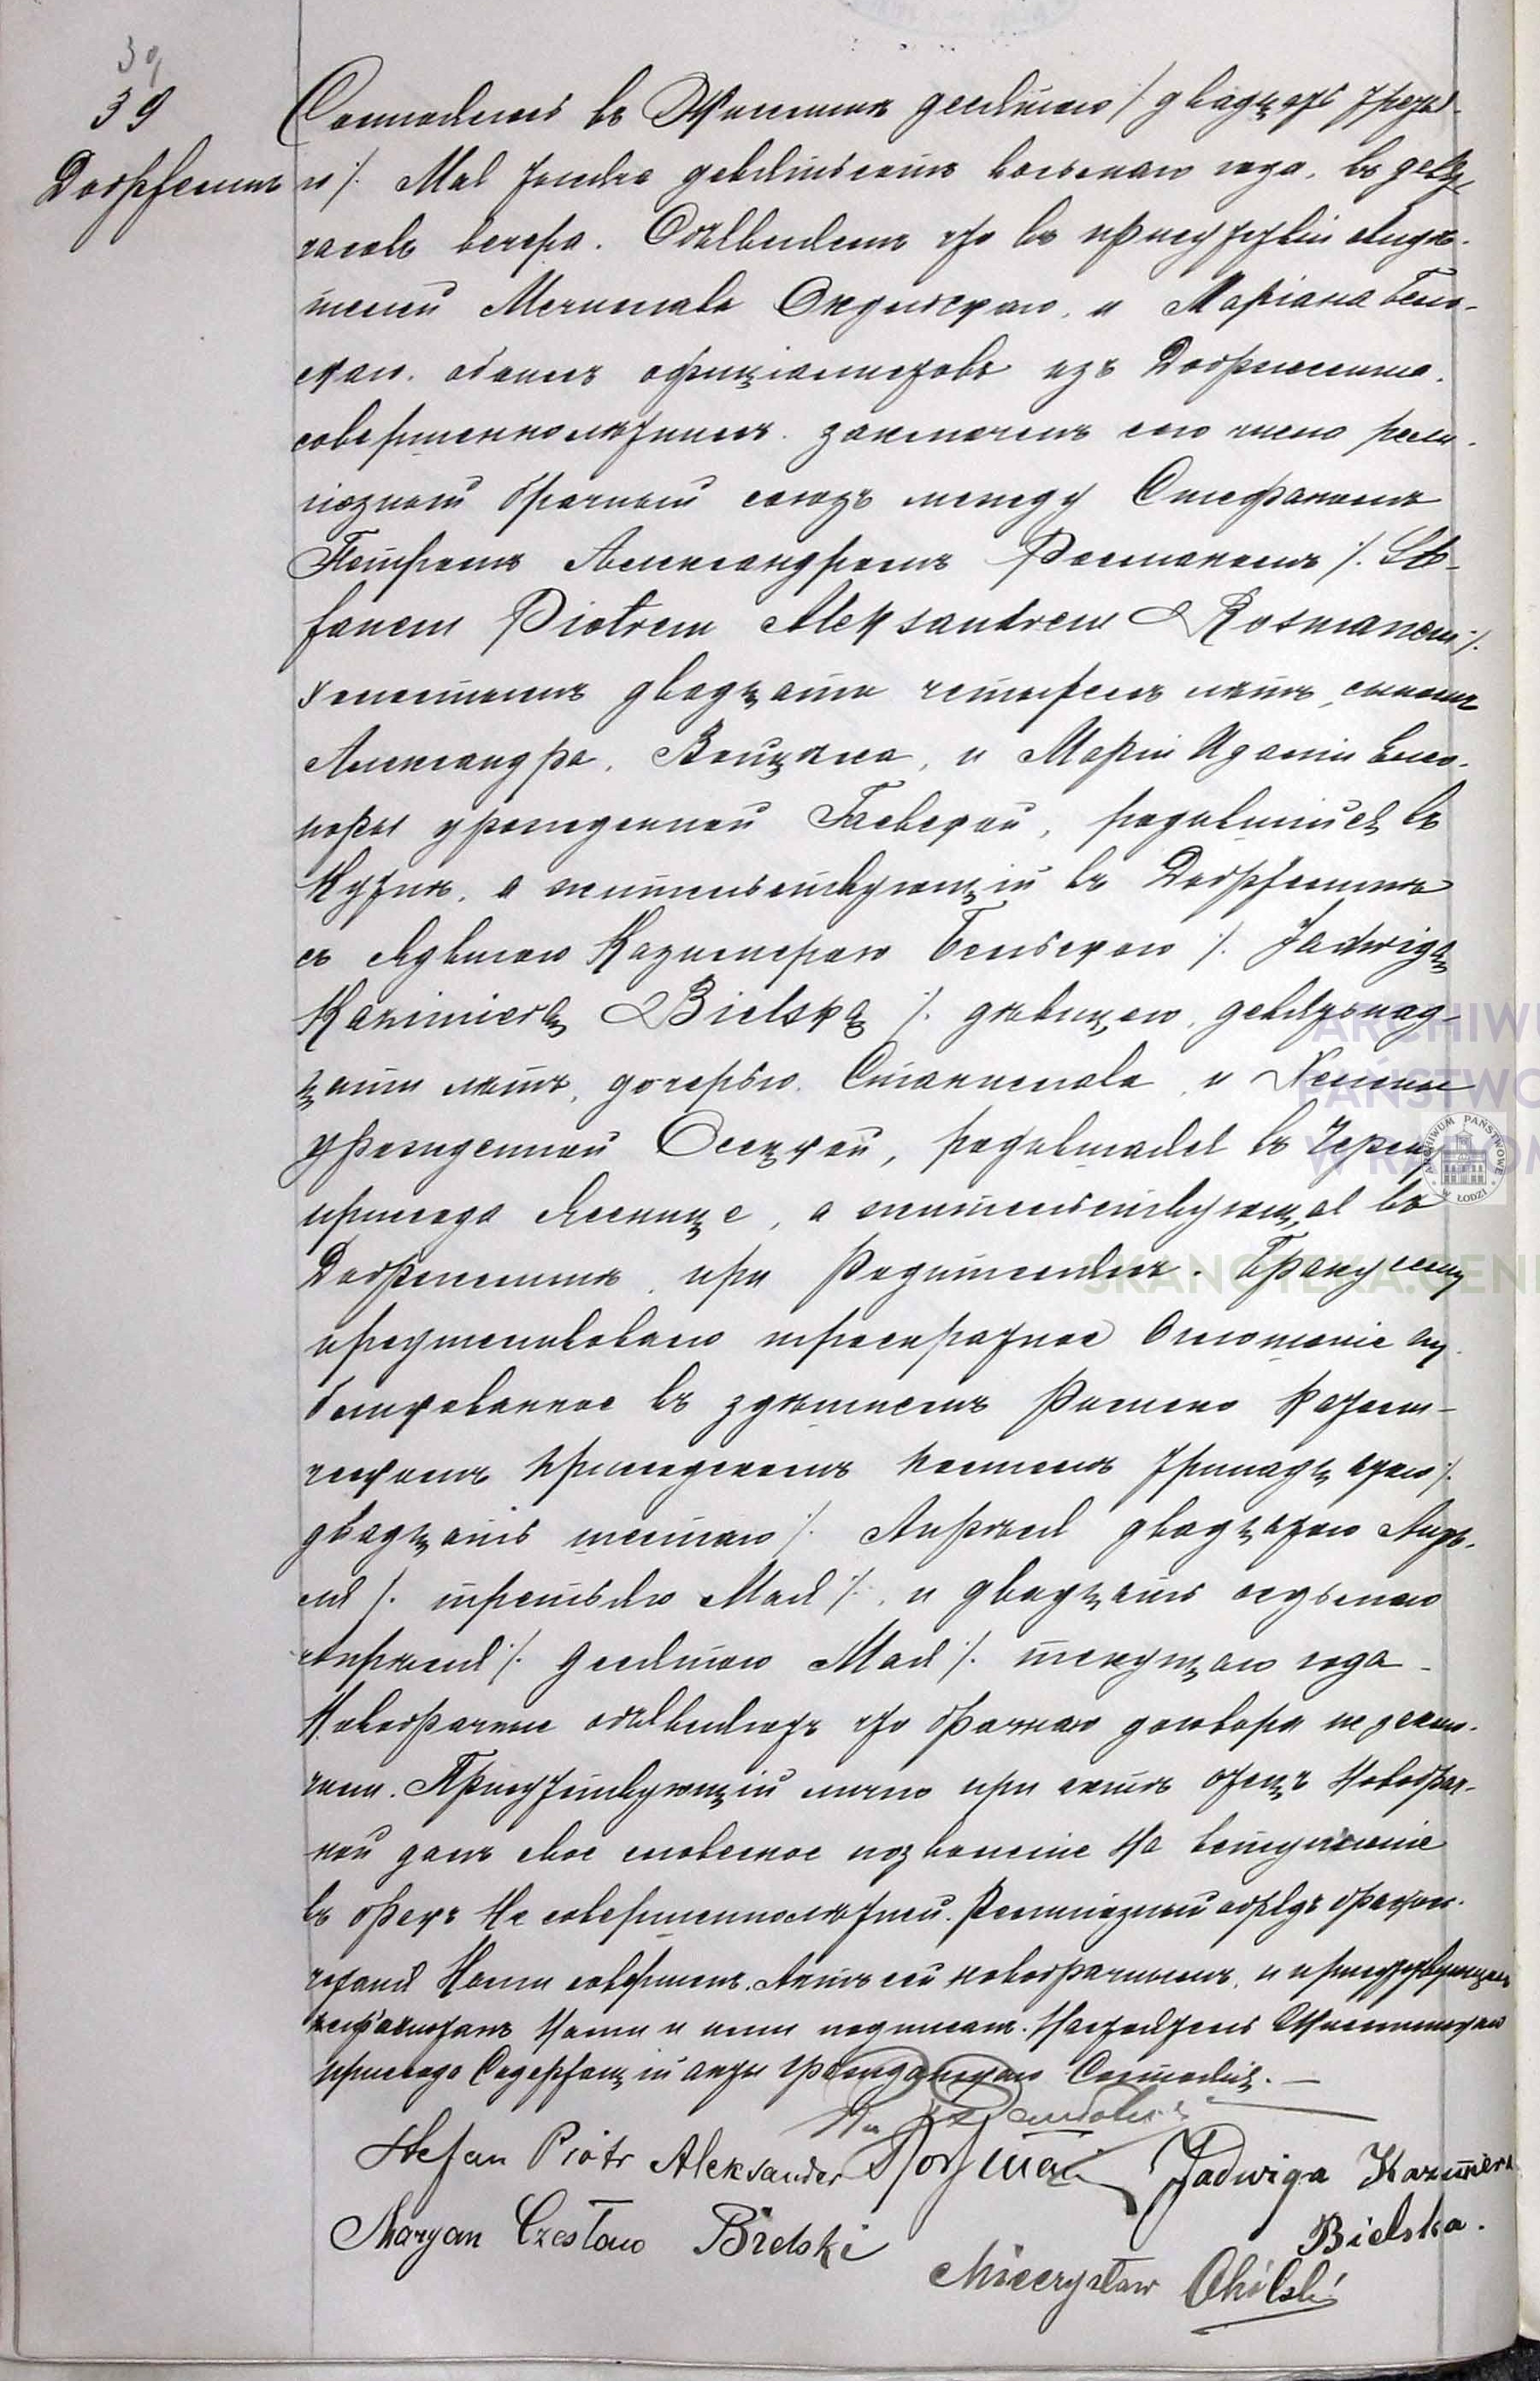 39
39
Добрженит
Состоялось въ Жытнѣ десятаго /:двадцать третья-
го:/ Мая тысяча девятьсотъ восьмаго года, въ девять
часовъ вечера. Объявляемъ что въ присутствіи свидѣ-
телей Мечислава и Маріана Бель-
скаго, обоихъ оффиціалистовъ изъ
совершеннолѣтнихъ, заключенъ сего числа рели-
гіозный брачный союзъ между Стефаномъ
Петромъ Александромъ Росманомъ /:Ste-
fanem Piotrem Aleksandrem Rosmanem:/
холостымъ двадцати четырехъ лѣтъ, сыномъ
Александра, и Маріи Элео-
норы урожденной родившійся въ
Кутнѣ, а жительствующій въ
съ Ядвигою Казимерою Бельскою /:Jadwigą
Kazimierą Bielską:/ дѣвицею, девятнад-
цати лѣтъ, дочерью Станислава и Хелены
урожденной Осецкой, родившаяся въ
прихода а жительствующая въ
при Родителяхъ. Браку сему
предшествовало троекратное оглашеніе пу-
бликованное въ здѣшнемъ Римско Католи-
ческомъ Приходскомъ костелѣ тринадцатаго /:
двадцать шестаго:/ Апрѣля двадцатаго Апрѣ-
ля /:третьяго Мая:/ и двадцать седьмаго
Апрѣля /:десятаго Мая:/ текущаго года.
Новобрачные объявляютъ что брачнаго договора не заклю-
чили. Присутствующій лично при актѣ отецъ Новобрач-
ной далъ свое словесное позволеніе на вступленіе
въ бракъ Не совершеннолѣтней. Религіозный обрядъ бракосо-
четанія Нами совершенъ. Актъ сей новобрачнымъ, и присутствующимъ
прочитанъ Нами и ими подписанъ. Настоятель Жытненскаго
прихода Содержащій акты гражданскаго Состоянія. —
Stefan Piotr Aleksander Rosman Jadwiga Kazimiera
Bielska.
Maryan Czesław Bielski
Mieczysław
ARCHIWUM PAŃSTWOWE
W ŁODZI